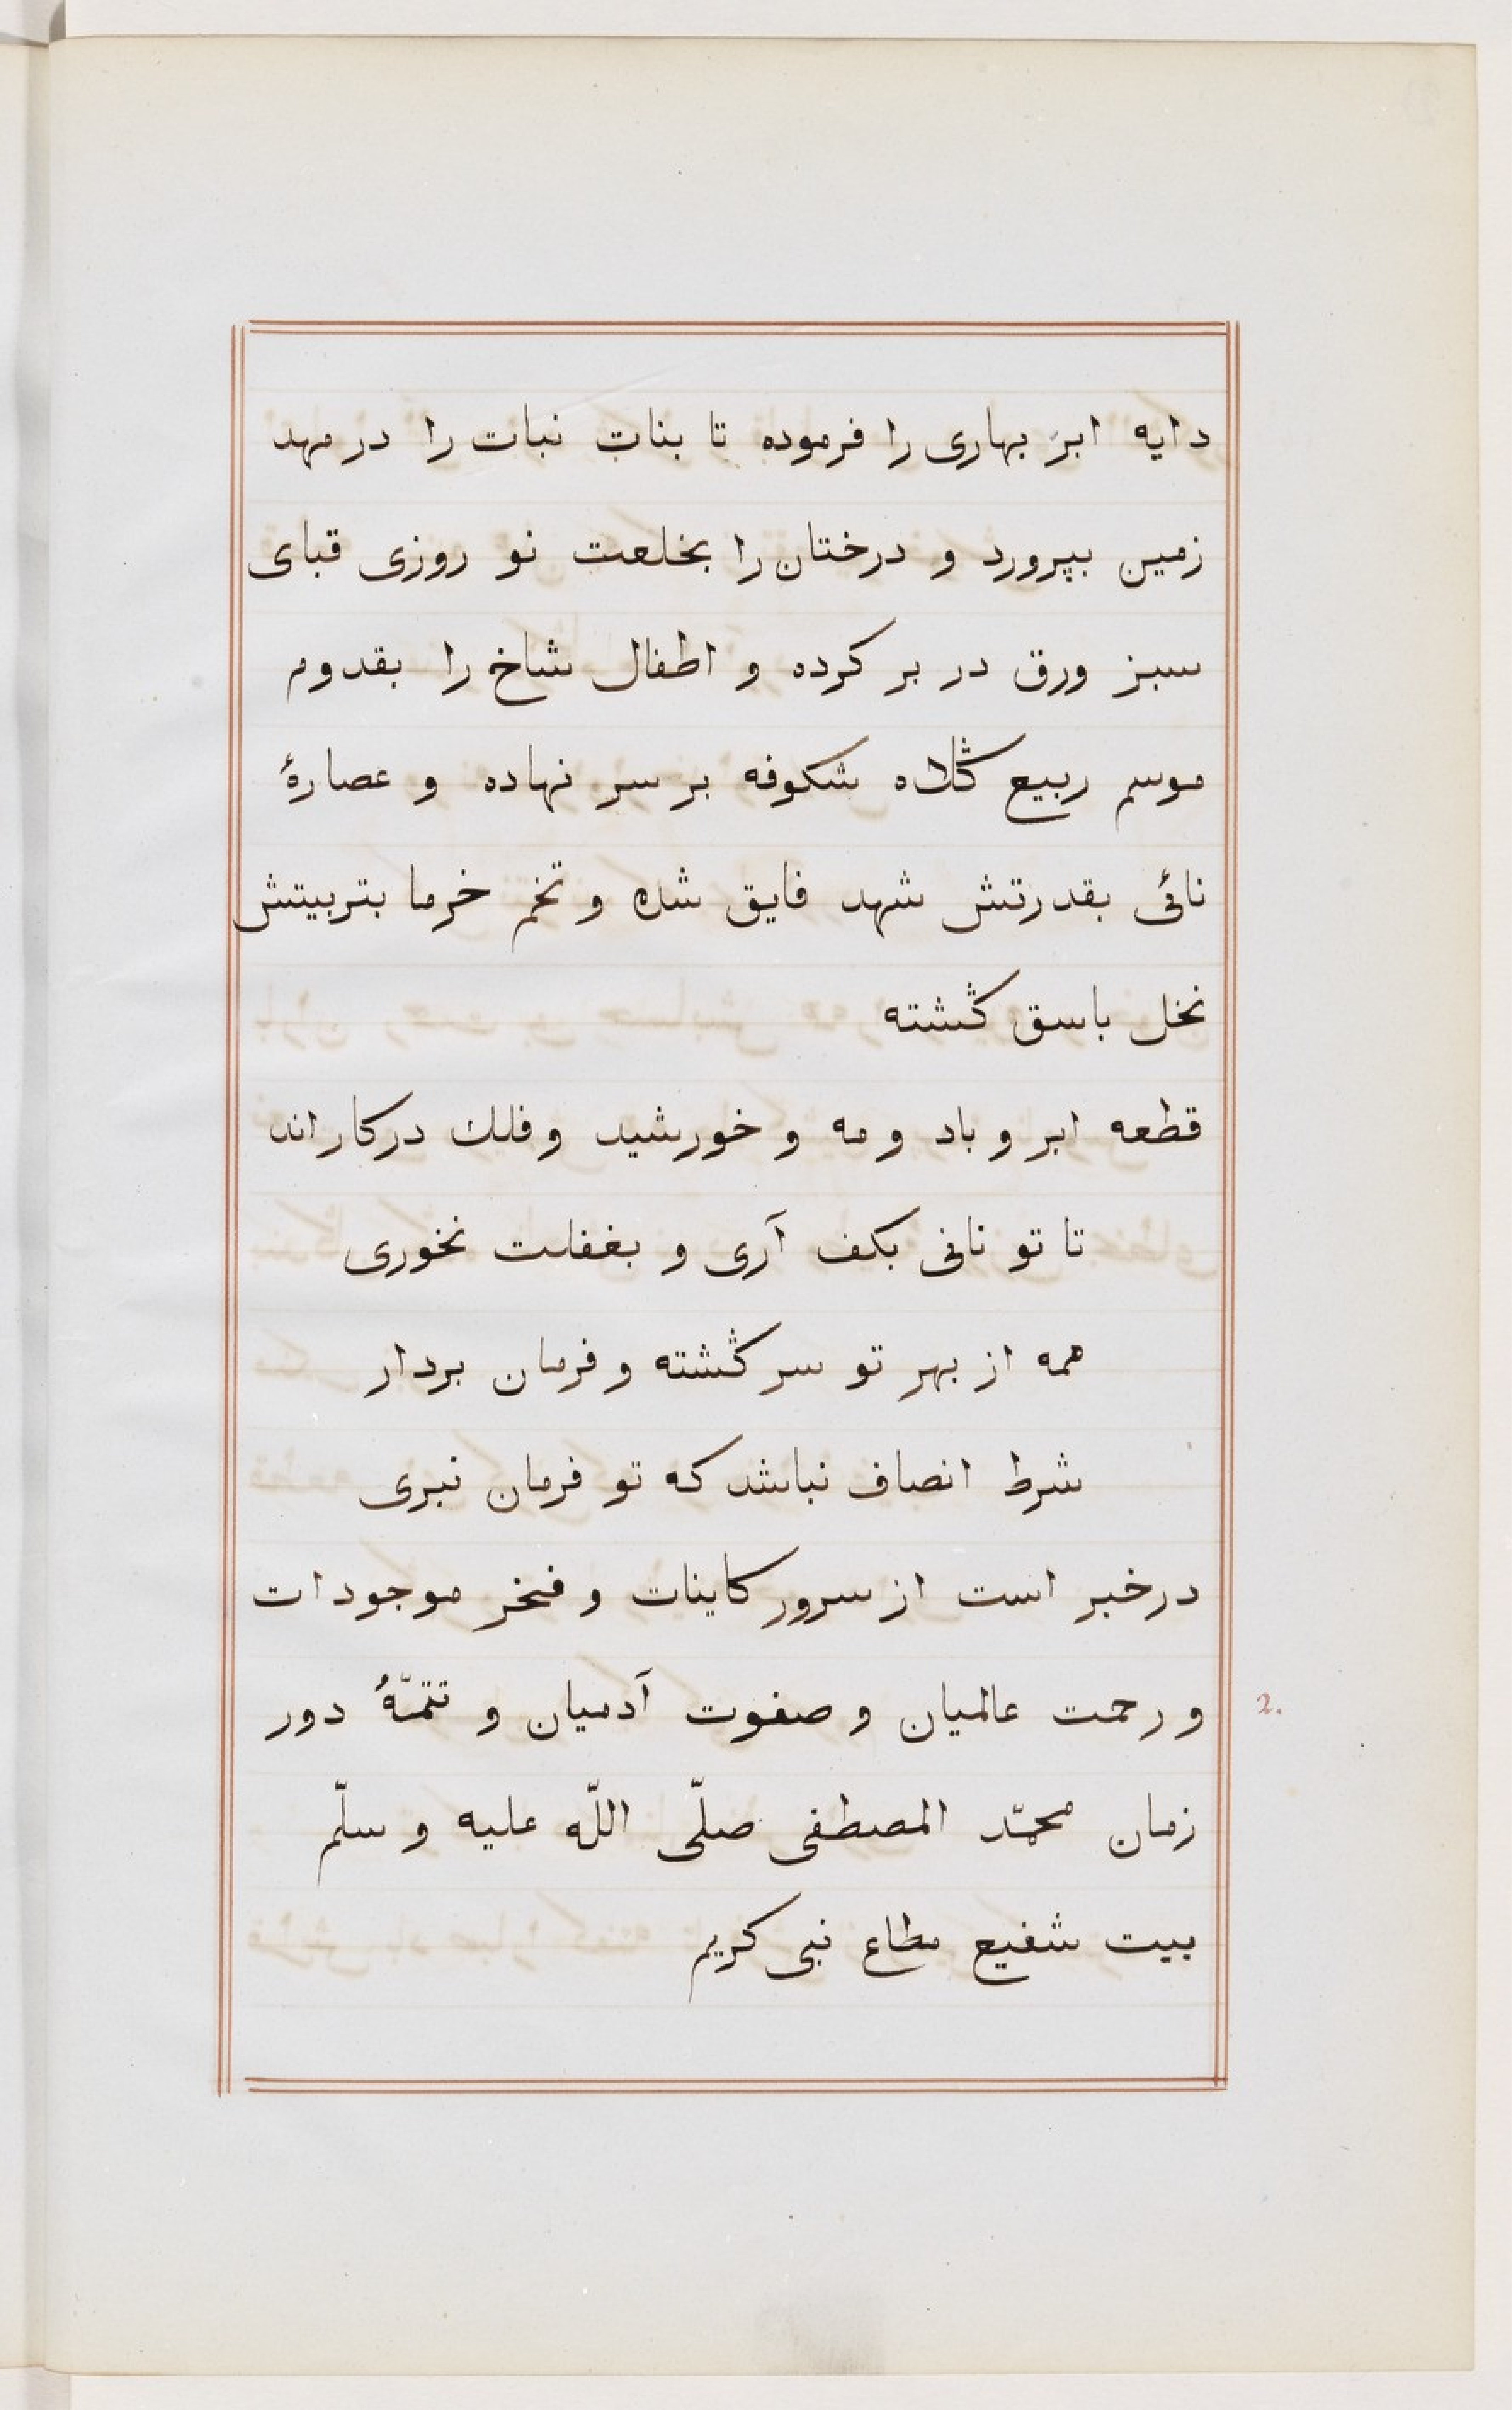 دایه ابر بهاری را فرموده تا بنات نبات را در مهد
زمین بپرورد و درختان را بخلعت نو روزی قبای
سبز ورق در بر کرده و اطفال شاخ را بقدوم
موسم ربیع کلاه شکوفه بر سر نهاده و عصارهٔ
نائی بقدرتش شهد فایق شده و تخم خرما بتربیتش
نخل باسق گشته
قطعه ابر و باد و مه و خورشید و فلك در کار اند
تا تو نانی بکف آری و بغفلت نخوری
همه از بهر تو سر گشته و فرمان بردار
شرط انصاف نباشد که تو فرمان نبری
در خبر است از سرور کاینات و فخر موجودات
و رحمت عالمیان و صفوت آدمیان و تتمّهٔ دور
2.
زمان محمّد المصطفی صلّی اللّه علیه و سلّم
بیت شفیع مطاع نبی کریم